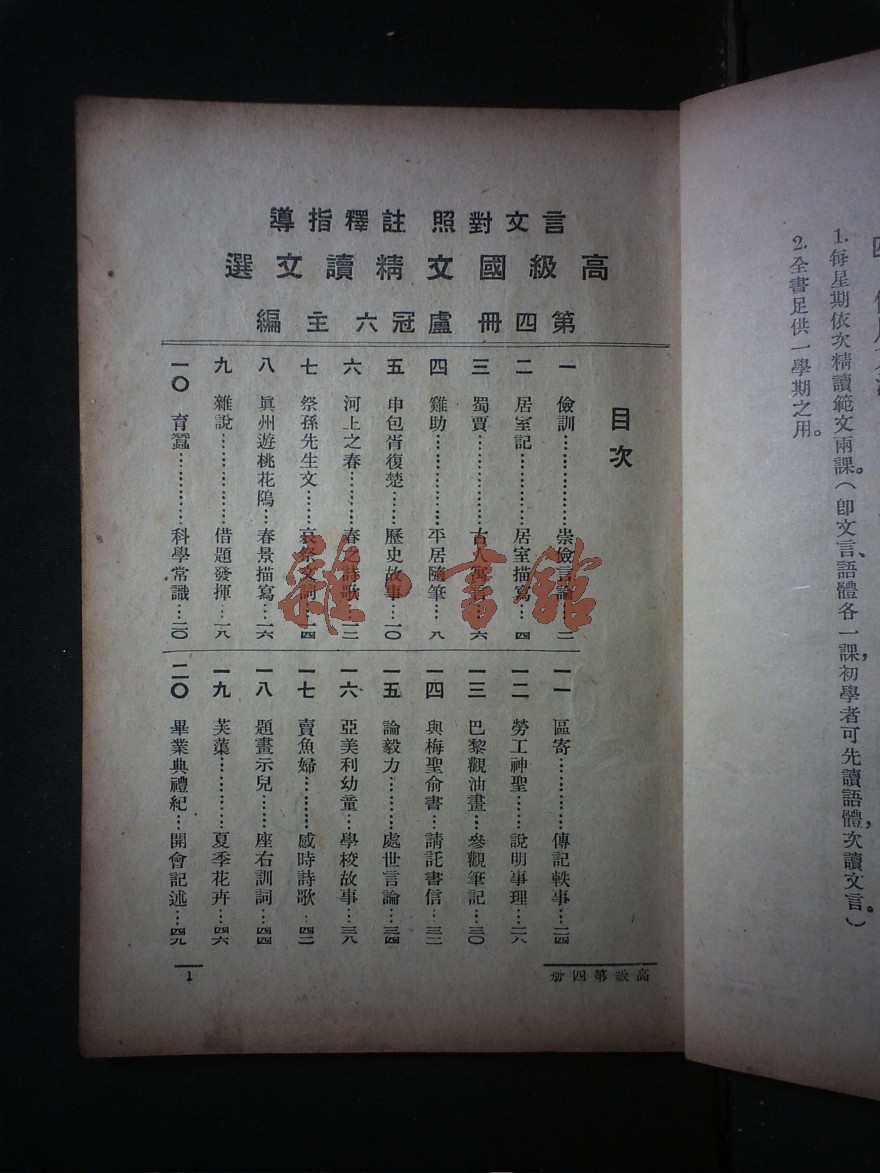 1. 每星期依次精讀範文兩課。（卽文言、語體各一課，初學者可先讀語體，次讀文言。）
2. 全書足供一學期之用。
言文對照 註釋指導
高級國文精讀文選
第四冊 盧冠六主編
目次
一 儉訓……………崇儉言論…二
二 居室記…………居室描寫…四
三 蜀賈……………古人寓言…六
四 雞助……………平居隨筆…八
五 申包胥復楚……歷史故事…一〇
六 河上之春………春之詩歌…一二
七 祭孫先生文……哀祭文詞…一四
八 眞州遊桃花隖…春景描寫…一六
九 雜說……………借題發揮…一八
一〇 育蠶…………科學常識…二〇
一一 區寄…………傳記軼事…二四
一二 勞工神聖……說明事理…二八
一三 巴黎觀油畫…參觀筆記…三〇
一四 與梅聖俞書…請託書信…三二
一五 論毅力………處世言論…三四
一六 亞美利幼童…學校故事…三八
一七 賣魚婦………感時詩歌…四二
一八 題畫示兒……座右訓詞…四四
一九 芙蕖…………夏季花卉…四六
二〇 畢業典禮紀…開會記述…四九
高級第四冊
1
雜·書館